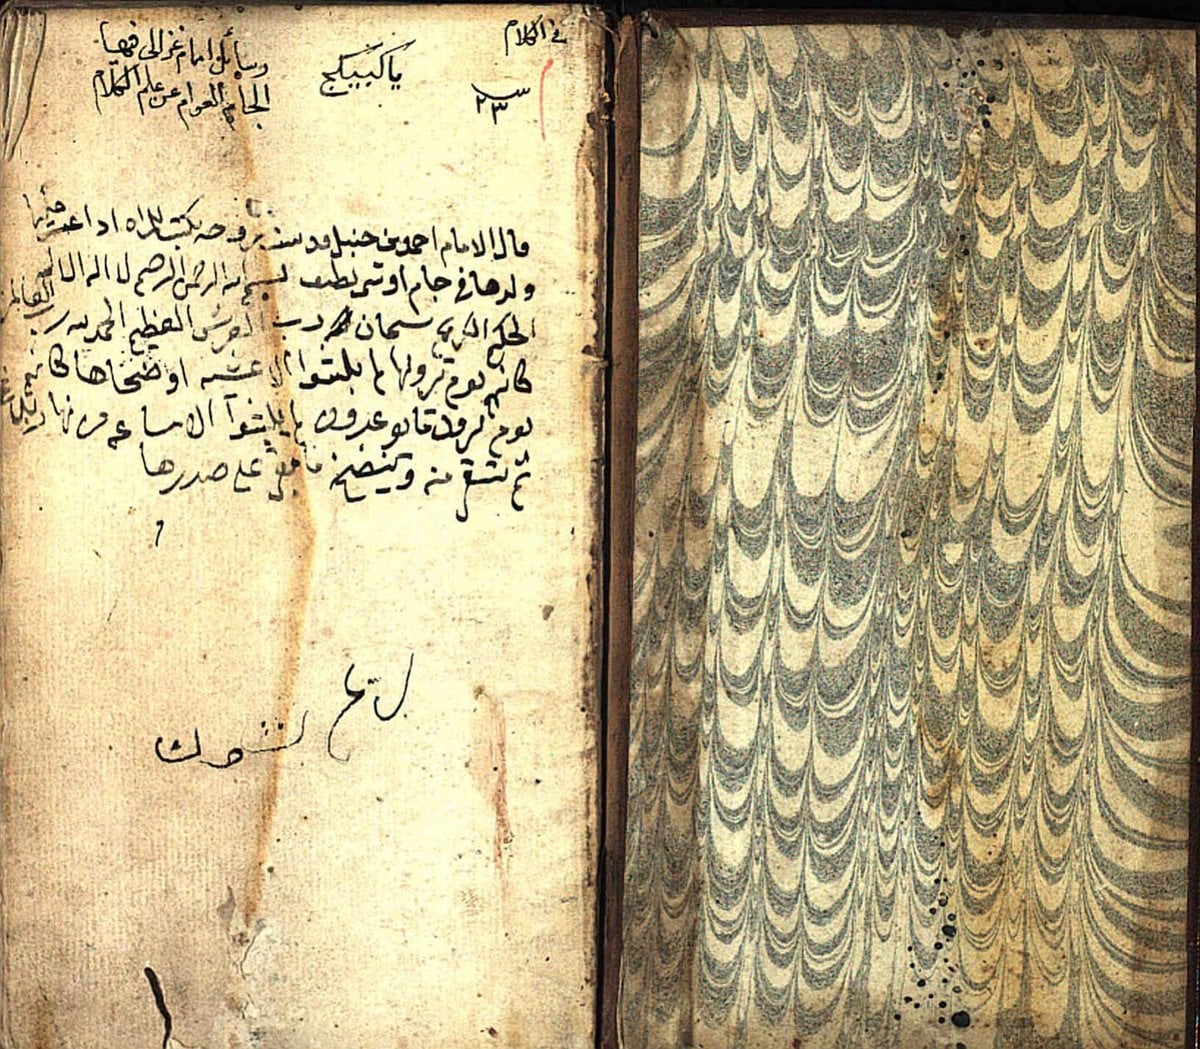 في الكلام
يا كبيكج
رسائل امام غزالي فيها
الجام العوام عن علم الكلام
٢٣
قال الامام احمد بن حنبل
ولدها في جام او شئ نظيف بسم الله الرحمن الرحيم لا اله الا الله
الحليم الكريم سبحان رب العرش العظيم الحمد لله رب العالمين
كانهم يوم يرونها لم يلبثوا الا عشية او ضحاها كانهم
يوم يرون ما يوعدون لم يلبثوا الا ساعة من نهار بلاغ
ثم تسقى منه وينضح ما بقي على صدرها